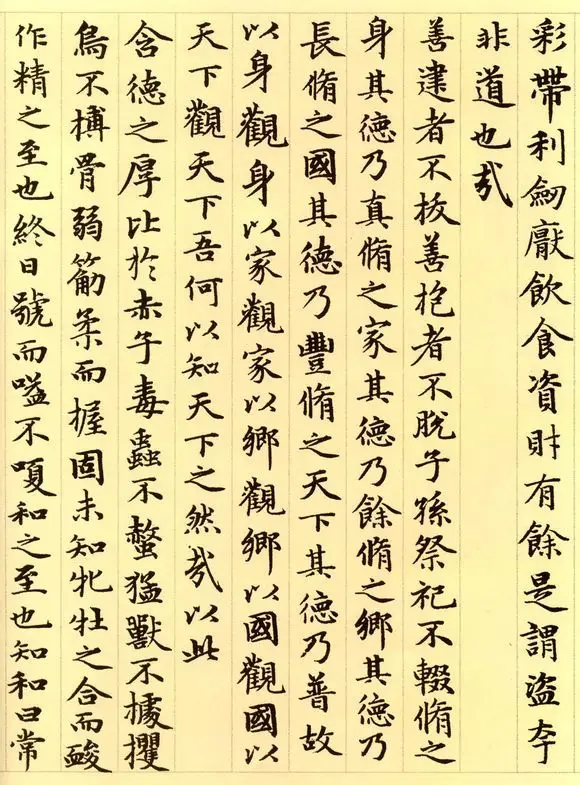 彩帶利劒厭飲食資財有餘是謂盜夸
非道也哉
善建者不拔善抱者不脫子孫祭祀不輟脩之
身其德乃真脩之家其德乃餘脩之鄉其德乃
長脩之國其德乃豐脩之天下其德乃普故
以身觀身以家觀家以鄉觀鄉以國觀國以
天下觀天下吾何以知天下之然哉以此
含德之厚比於赤子毒蟲不螫猛獸不據攫
鳥不搏骨弱筋柔而握固未知牝牡之合而
作精之至也終日號而嗌不嗄和之至也知和曰常